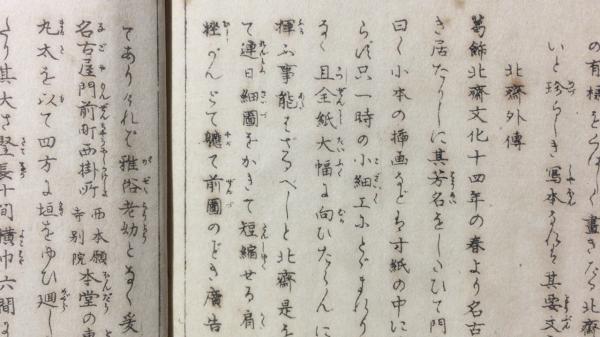 の有様をうつし畫きたる北齋
いと珍らしき寫本なれば其要文
北齋外傳
葛飾北齋文化十四年の春より名古
き居たりしに其芳名をしたひて門
曰く小本の插画などは方寸紙の中に
らば只一時の小細工にとゞまれり
るく且全紙大幅に向ひたらんに
揮ふ事能はざるべしと北齋是を
て連日細圖をかきて短縮せる肩
軈て前圖のごとき廣告
てありければ雅俗老幼となく爰
名古屋門前町西掛所 西本願寺別院 本堂の東
丸太を以て四方に垣をゆひ廻し
たり其大さ竪長十間横巾六間